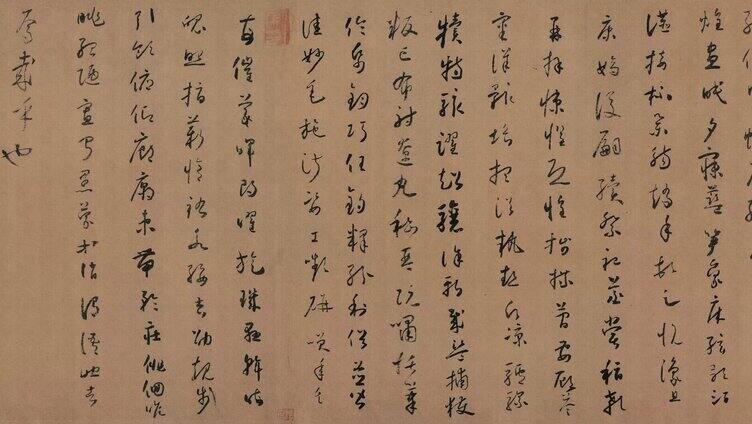 煌晝眠夕寐藍筍象床弦歌酒
讌接杯舉觴矯手頓足悅豫且
康嫡後嗣續祭祀蒸嘗稽顙
再拜悚懼恐惶牋牒簡要顧答
審詳骸垢想浴執熱願涼驢騾
犢特駭躍超驤誅斬賊盜捕獲
叛亡布射遼丸嵇琴阮嘯恬筆
倫紙鈞巧任釣釋紛利俗並皆
佳妙毛施淑姿工顰妍笑年矢
每催羲暉朗曜旋璣懸斡晦
魄照指薪脩祜永綏吉劭矩步
引領俯仰廊廟束帶矜莊徘徊瞻
眺孤陋寡聞愚蒙等誚謂語助者
焉哉乎也